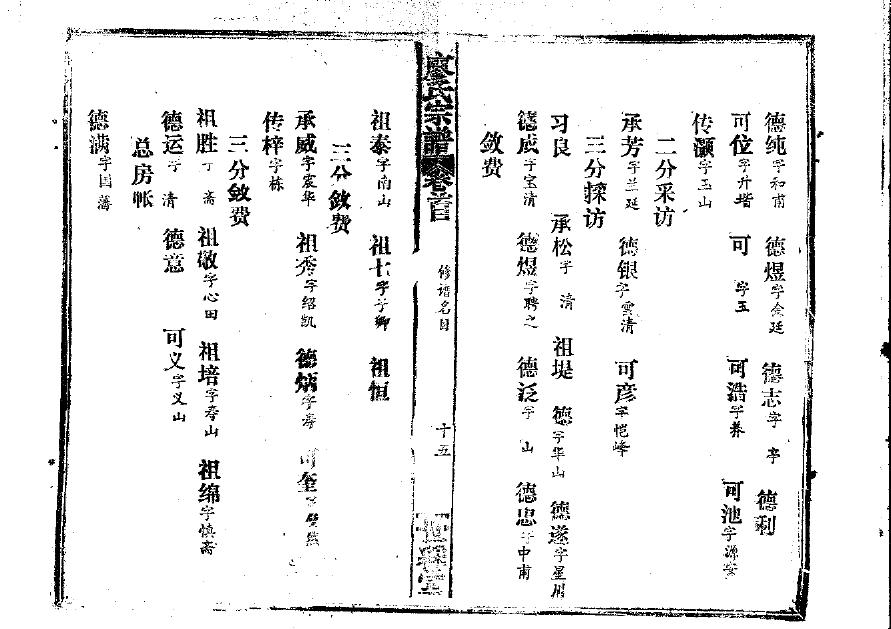 德纯字和南 德煜字余廷 德志字 亭 德利
可位字升堦 可 字玉 可浩字养 可池字源安
传灏字玉山
二分采访
承芳字兰廷 德银字雲清 可彦字恺峰
三分採访
习良 承松字 清 祖堤 德 字华山 德遂字星川
德成字宝清 德煜字聘之 德泛字 山 德忠字中甫
敛费
廖氏宗譜 卷首目 修谱名目 十五 世綵堂
祖泰字南山 祖七字子卿 祖恒
三分敛费
承威字宸华 祖秀字绍凯 德炳字寿 可奎
传梓字栋
三分敛费
祖胜字 斋 祖敬字心田 祖培字寿山 祖绵字慎斋
德运字 清 德意 可义字义山
总房帐
德满字国藩